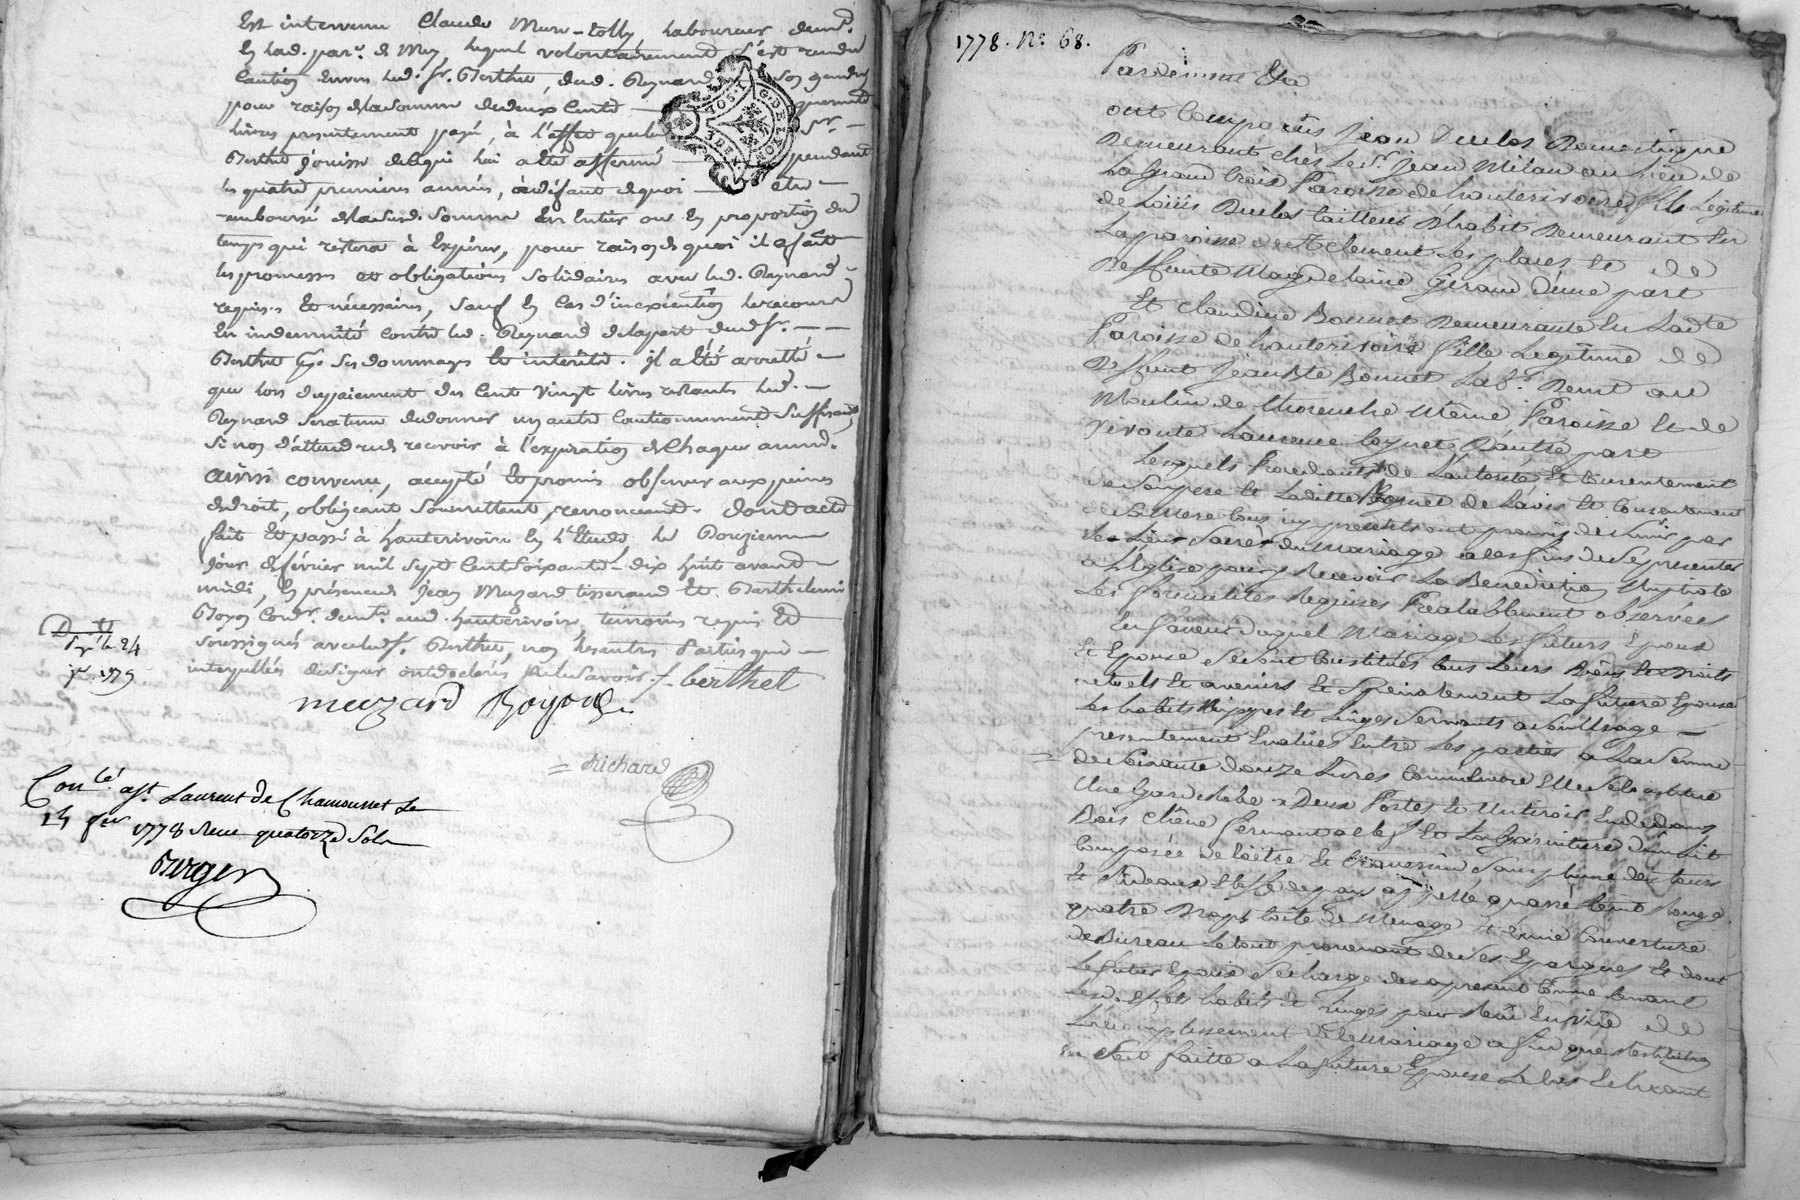 Est intervenu Claude Mure-tolly, laboureur demt.
En lad. par. de Mey lequel volontairement s'est rendu
Caution Envers led. Sr. Berthet, dud. Reynard son gendre
pour raison de la somme de deux Cent quarente
livres presentement payé, à l'effet que led. Sr.
Berthet jouisse de ce qui lui a été affermé pendant
les quatre premieres années, à défaut de quoi etre
remboursé de la susd. somme En Entier ou En proportion du
temps qui restera à Expirer, pour raison de quoi il a fait
les promesses et obligations solidaires avec led. Reynard
requises Et nécessaires, sauf En Cas d'inexécution le recours
En indemnité contre led. Reynard de la part dud. Sr.
Berthet ses dommages Et interêts. il a été arretté
que lors du paiement des Cent vingt livres restants led.
Reynard sera tenu de donner un autre Cautionnement suffisant
Si non d'attendre de recevoir à l'expiration de Chaque année.
ainsi convenu, accepté Et promis observer aux peines
de droit, obligeant soumettant, renonceant. dont acte
fait Et passé à hauterivoire En l'Etude le Douzieme
jour de février mil sept Cent soixante-dix huit avant
midi, En présence de Jean Muzard tisserand Et Barthelemi
Boyon Cord. demt. aud. hauterivoire, témoins requis Et
soussignés avec led. Sr. Berthet, non les autres Parties qui
interpellés de signer ont déclaré ne le savoir. berthet
muzard Boyon
Richard
24
1779
Conlé. a St. Laurent de Chamousset Le
14 fer 1778 Reçu quatorze Sols
Berger
G. DE LYON
1778. No. 68.
Pardevant &ca
ont Comparûs Jean Duclos Domestique
Demeurant chès le Sr. Jean Milan au lieu de
La Grand Croix Paroisse de hauterivoire fils Legitime
de Loüis Duclos tailleur d'habit Demeurant En
La paroisse de St. Clement les places Et de
Deffunte Magdelaine Giraud d'une part
Et Claudine Bonnet Demeurante En Ladte
Paroisse de hauterivoire fille Legitime de
Deffunt Jean Bte Bonnet Lab. Demt au
Moulin de même Paroisse Et de
vivante Laurence Coquet D'autre part
Lesquels Procedants de L'autorité Et Consentement
de Son pere Et Laditte Bonnet de L'avis Et Consentement
de Sa Mere tous icy presents ont promis de s'unir par
les Liens Sacrés du Mariage a les fins de Se presenter
a L'Eglise pour y Recevoir La Benediction Nuptiale
Les formalités Requises Prealablement observées
En faveur Duquel Mariage Les futurs Epoux
Et Epouse Se sont Constitués tous Leurs Biens Et Droits
actuels Et avenirs Et Specialement La future Epouse
Les habits Nippes Et Linges Servants a Son Usage
presentement Evalués Entre Les parties a La Somme
de Soixante douze Livres Comm'encore Elle Se Constitue
Une Garderobe a Deux Portes Et Un tiroir En dedans
Bois Chêne fermant a clef Et La Garniture D'un Lit
Composée de Coëtre Et traversin Sans plume des tours
Et Rideaux Etoffe de pays teint Rouge
quatre Draps toile de Menage Et d'une Couverture
de Bureau Le tout provenant de Ses Epargnes Et dont
Le futur Epoux Se charge des a present Comme tenant
Lesd. Effets habits Et linges pour Reçus En vüe de
L'accomplissement de Ce Mariage a fin que Restitution
En Soit faitte a La future Epouse Le Cas Echeant